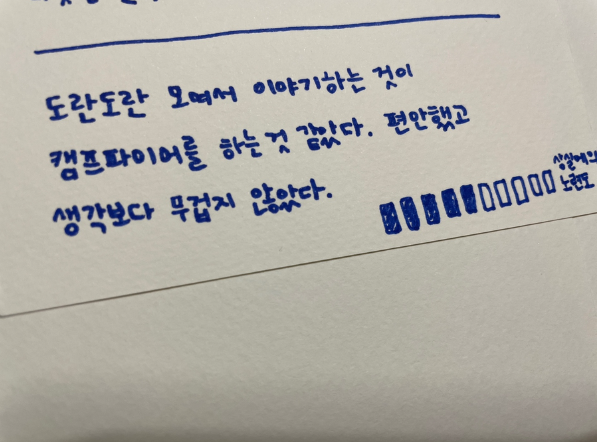 도란도란 모여서 이야기하는 것이
캠프파이어를 하는 것 같았다. 편안했고
생각보다 무겁지 않았다.
상실에의
노련도